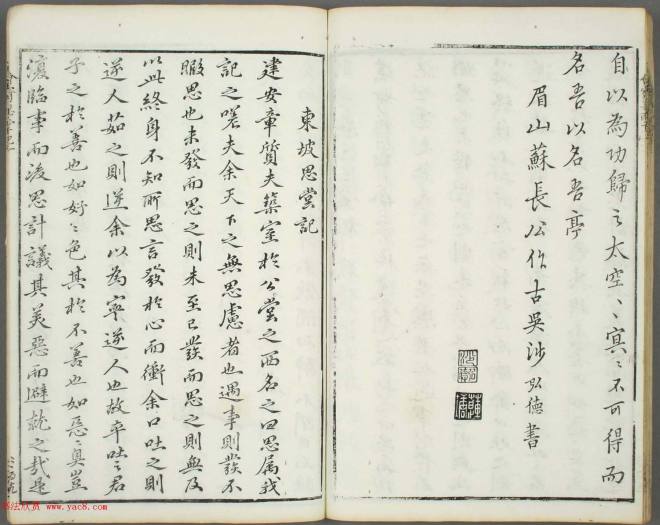 自以為功歸之太空〻冥〻不可得而
名吾以名吾亭
眉山蘇長公作古吳沙弘德書
東坡思堂記
建安章質夫築室於公堂之西名之曰思屬我
記之嗟夫余天下之無思慮者也遇事則發不
暇思也未發而思之則未至已發而思之則無及
以此終身不知所思言發於心而衝余口吐之則
逆人茹之則逆余以為寧逆人也故卒吐之君
子之於善也如好〻色其於不善也如惡〻臭豈
復臨事而後思計議其美惡而避就之哉是
www.yac8.com